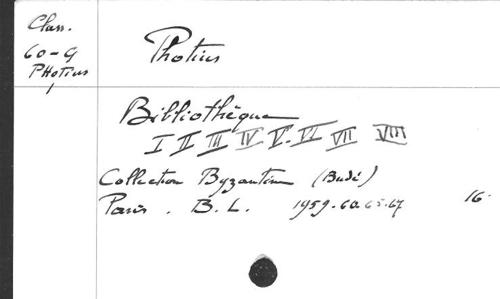 Class.
60-G
PHoTius
Photius
Bibliothèque
I II III IV V. VI VII VIII
Collection Byzantine (Budé)
Paris. B. L. 1959.60.65.67 16